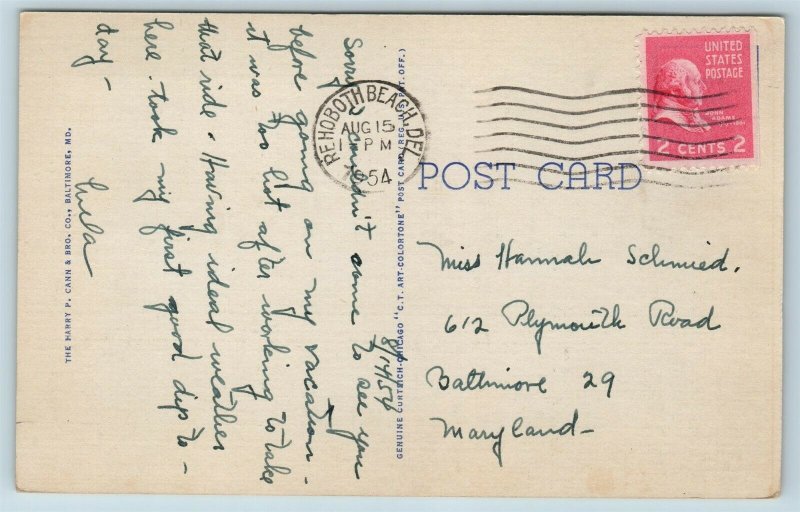 8/14/54
Sorry I couldn't come to see you
before going on my vacation -
it was too hot after working to take
that ride. Having ideal weather
here. took my first good dip to-
day -
Lula
THE HARRY P. CANN & BRO. CO., BALTIMORE, MD.
GENUINE CURTEICH-CHICAGO "C.T. ART-COLORTONE" POST CARD (REG. U.S. PAT. OFF.)
REHOBOTH BEACH, DEL.
AUG 15
PM
1954
UNITED
STATES
POSTAGE
JOHN
ADAMS
2 CENTS 2
POST CARD
Miss Hannah Schmied.
612 Plymouth Road
Baltimore 29
Maryland -